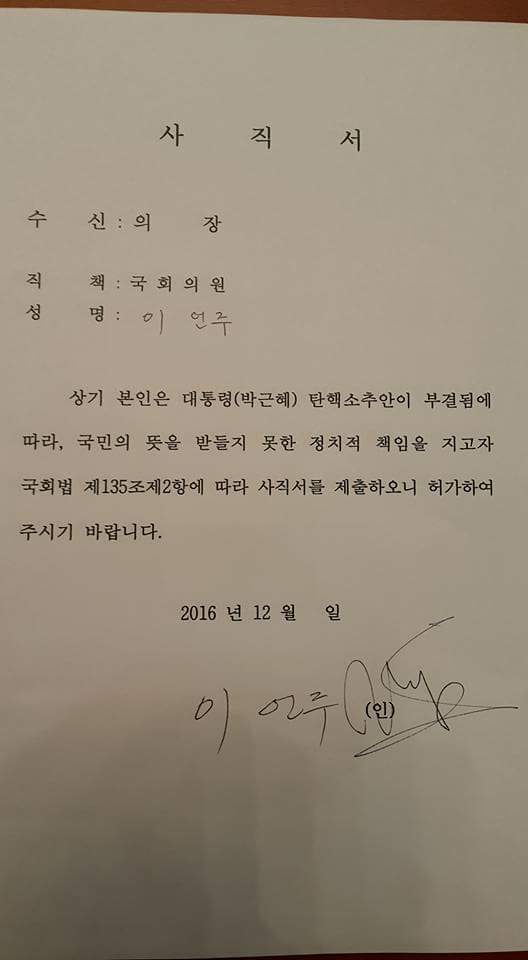 사 직 서
수 신 : 의 장
직 책 : 국회의원
성 명 : 이 언주
상기 본인은 대통령(박근혜) 탄핵소추안이 부결됨에
따라, 국민의 뜻을 받들지 못한 정치적 책임을 지고자
국회법 제135조제2항에 따라 사직서를 제출하오니 허가하여
주시기 바랍니다.
2016 년 12 월 일
이 언주 (인)